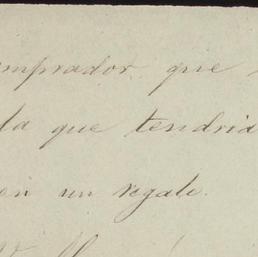 mprador que
la que tendria
en un regalo.